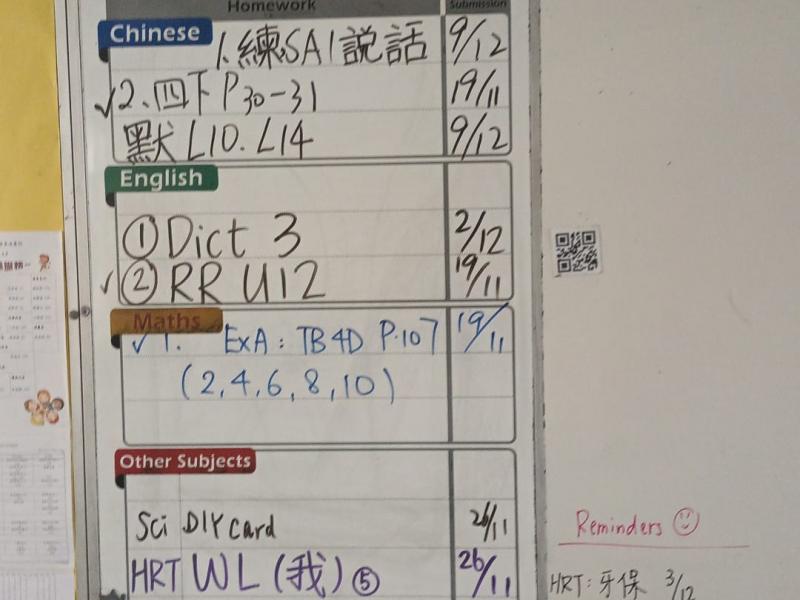 Homework Submission
Chinese
1. 練SA1說話 9/12
✓2. 四下 P30-31 19/11
默 L10. L14 9/12
English
① Dict 3 2/12
✓② RR U12 19/11
Maths
✓ 1. Ex A: TB4D P.107 19/11
(2, 4, 6, 8, 10)
Other Subjects
Sci DIY card 26/11
HRT WL (我) ⑤ 26/11
Reminders ☺
HRT: 牙保 3/12